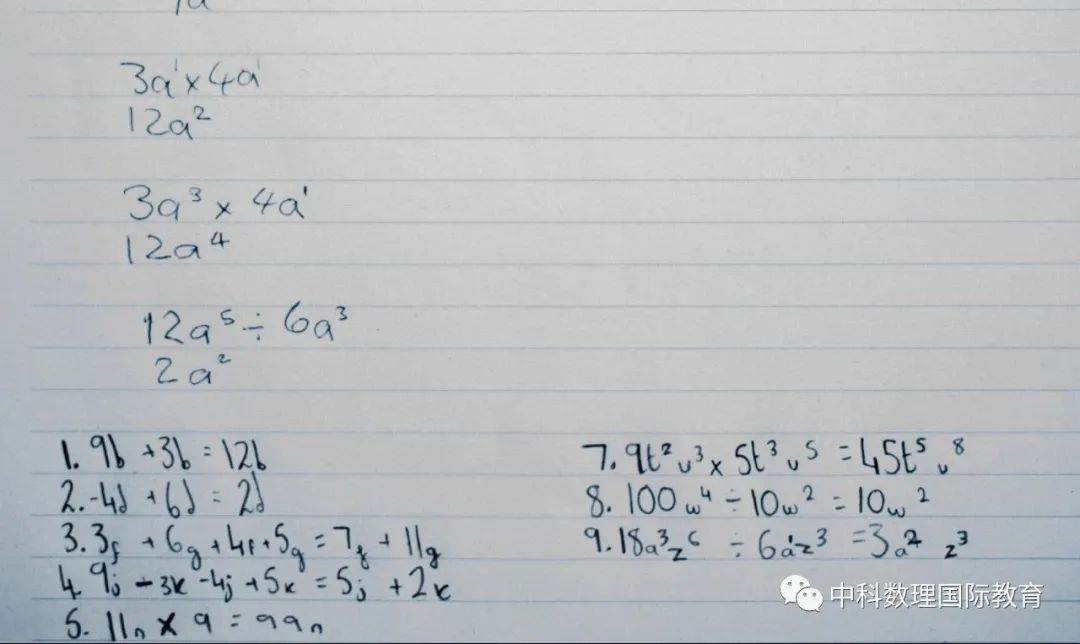 3a¹ × 4a¹
12a²
3a³ × 4a¹
12a⁴
12a⁵ ÷ 6a³
2a²
1. 9b + 3b = 12b
2. -4d + 6d = 2d
3. 3f + 6g + 4f + 5g = 7f + 11g
4. 9j - 3k - 4j + 5k = 5j + 2k
5. 11n × 9 = 99n
7. 9t²v³ × 5t³v⁵ = 45t⁵v⁸
8. 100w⁴ ÷ 10w² = 10w²
9. 18a³z⁶ ÷ 6a¹z³ = 3a² z³
中科数理国际教育